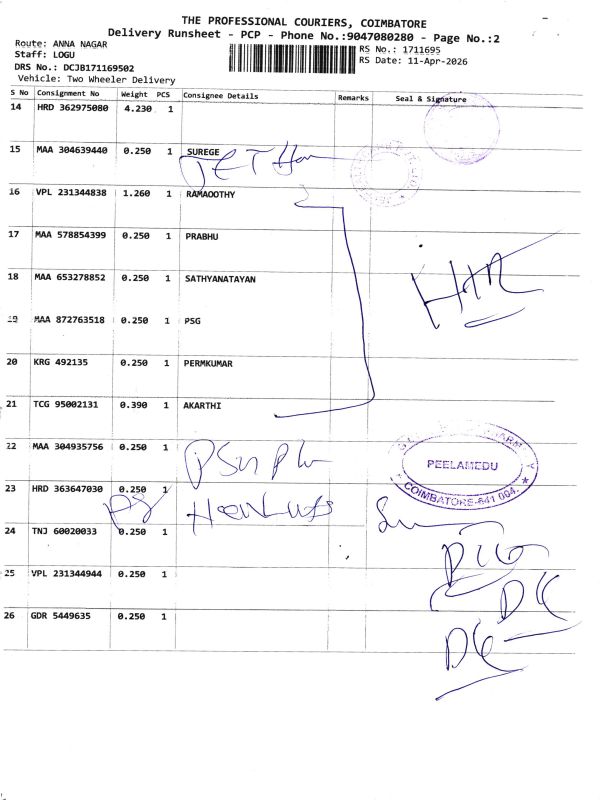 THE PROFESSIONAL COURIERS, COIMBATORE
Delivery Runsheet - PCP - Phone No.:9047080280 - Page No.:2
Route: ANNA NAGAR
Staff: LOGU
RS No.: 1711695
DRS No.: DCJB171169502
RS Date: 11-Apr-2026
Vehicle: Two Wheeler Delivery
S No Consignment No Weight PCS Consignee Details Remarks Seal & Signature
14 HRD 362975080 4.230 1
15 MAA 304639440 0.250 1 SUREGE
16 VPL 231344838 1.260 1 RAMAOOTHY
17 MAA 578854399 0.250 1 PRABHU
18 MAA 653278852 0.250 1 SATHYANATAYAN
19 MAA 872763518 0.250 1 PSG
20 KRG 492135 0.250 1 PERMKUMAR
21 TCG 95002131 0.390 1 AKARTHI
22 MAA 304935756 0.250 1
PEELAMEDU
COIMBATORE-641 004.
23 HRD 363647030 0.250 1
24 TNJ 60020033 0.250 1
25 VPL 231344944 0.250 1
26 GDR 5449635 0.250 1